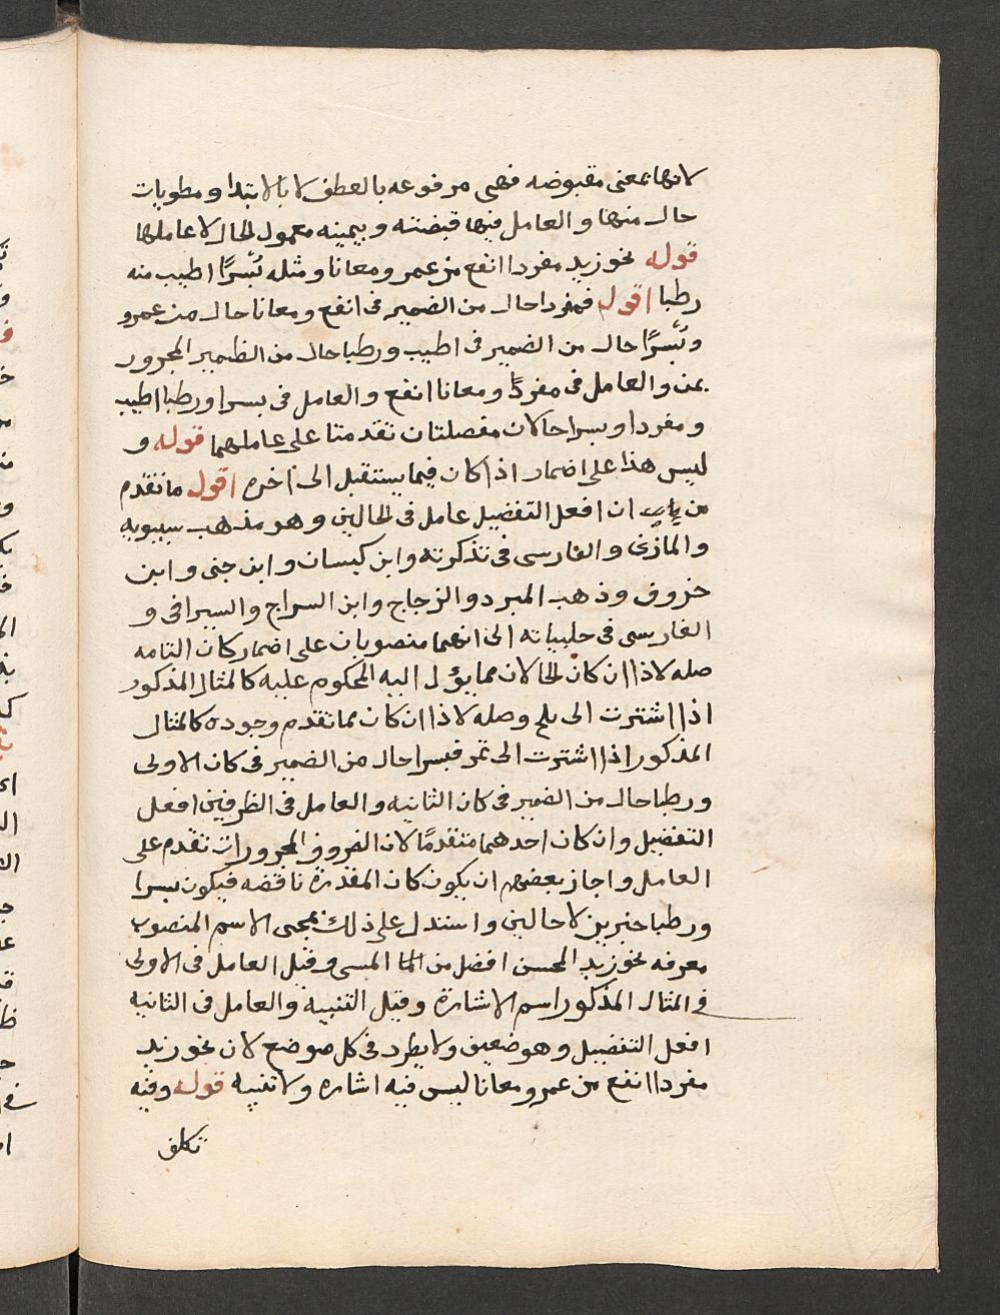 لانها بمعنى مقبوضه فهى مرفوعه بالعطف لا بالابتدا ومطويات
حال منها والعامل فيها قبضته وبيمينه معمول الحال لا عاملها
قوله نحو زيد مفردا انفع من عمرو معانا ومثله بُسْرًا اطيب منه
رطبا اقول فمفردا حال من الضمير فى انفع ومعانا حال من عمرو
وبُسْرًا حال من الضمير فى اطيب ورطبا حال من الظمير المجرور
بمن والعامل فى مفردًا ومعانا انفع والعامل فى بسرا ورطبا اطيب
ومفردا وبسرا حالان مفصلتان تقدمتا على عاملهما قوله و
ليس هذا على اضمار اذا كان فيما يستقبل الى اخره اقول ما تقدم
من ان افعل التفضيل عامل فى الحالين وهو مذهب سيبويه
والمازنى والفارسى فى تذكرته وابن كيسان وابن جنى وابن
خروف وذهب المبرد والزجاج وابن السراج والسيرافى و
الفارسى فى حلبياته الى انهما منصوبان على اضمار كان التامه
صله لاذا ان كان الحالان مما يؤل اليه المحكوم عليه كالمثال المذكور
اذا اشترت الى بلح وصله لاذا ان كان مما تقدم وجوده كالمثال
المذكور اذا اشترت الى تمر فبسرا حال من الضمير فى كان الاولى
ورطبا حال من الضمير فى كان الثانيه والعامل فى الظرفين افعل
التفضيل وان كان احدهما متقدمًا لان الظروف والمجرورات تقدم على
العامل واجاز بعضهم ان يكون كان المقدرة ناقصه فيكون بسرا
ورطبا خبرين لا حالين واستدل على ذلك بمجى الاسم المنصوب
معرفه نحو زيد المحسن افضل من المسى وقيل العامل فى الاولى
فى المثال المذكور اسم الاشارة وقيل التنبيه والعامل فى الثانيه
افعل التفضيل وهو ضعيف ولا يطرد فى كل موضع لان نحو زيد
مفردا انفع من عمرو معانا ليس فيه اشاره ولا تنبيه قوله وفيه
تكلف